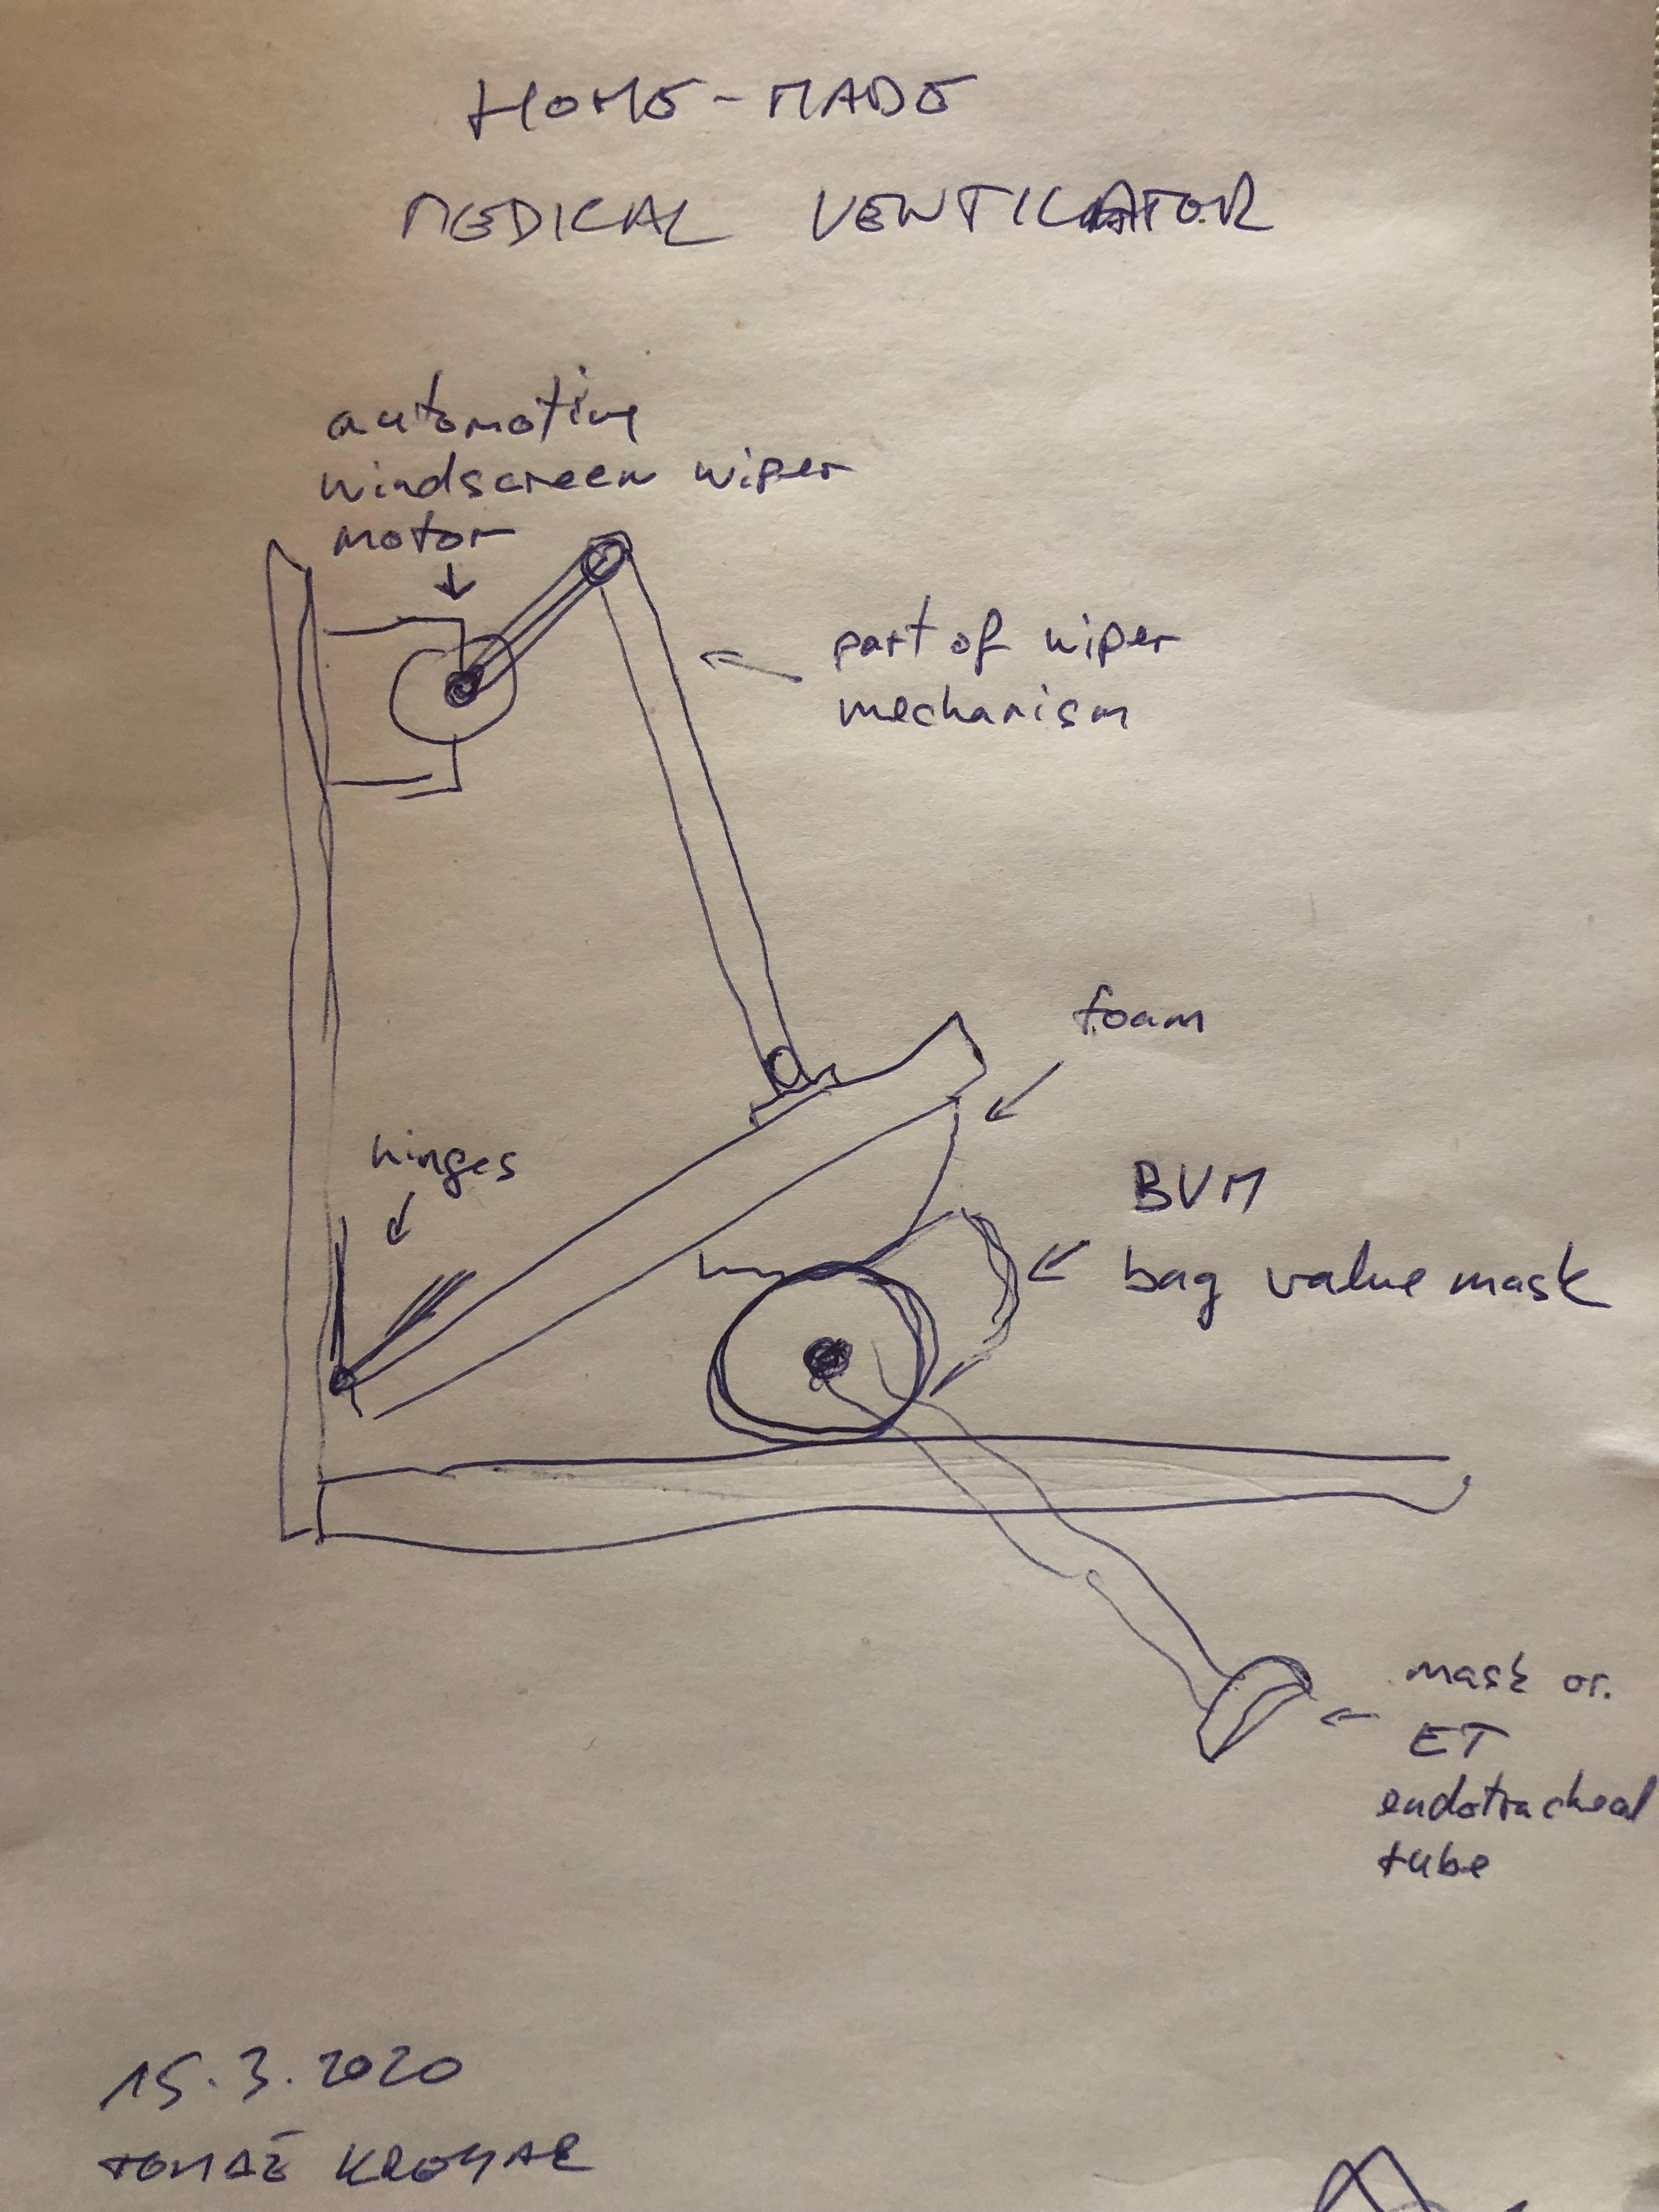 HOME-MADE
MEDICAL VENTILATOR
automotive
windscreen wiper
motor
part of wiper
mechanism
foam
hinges
BVM
bag value mask
mask or
ET
endotracheal
tube
15.3.2020